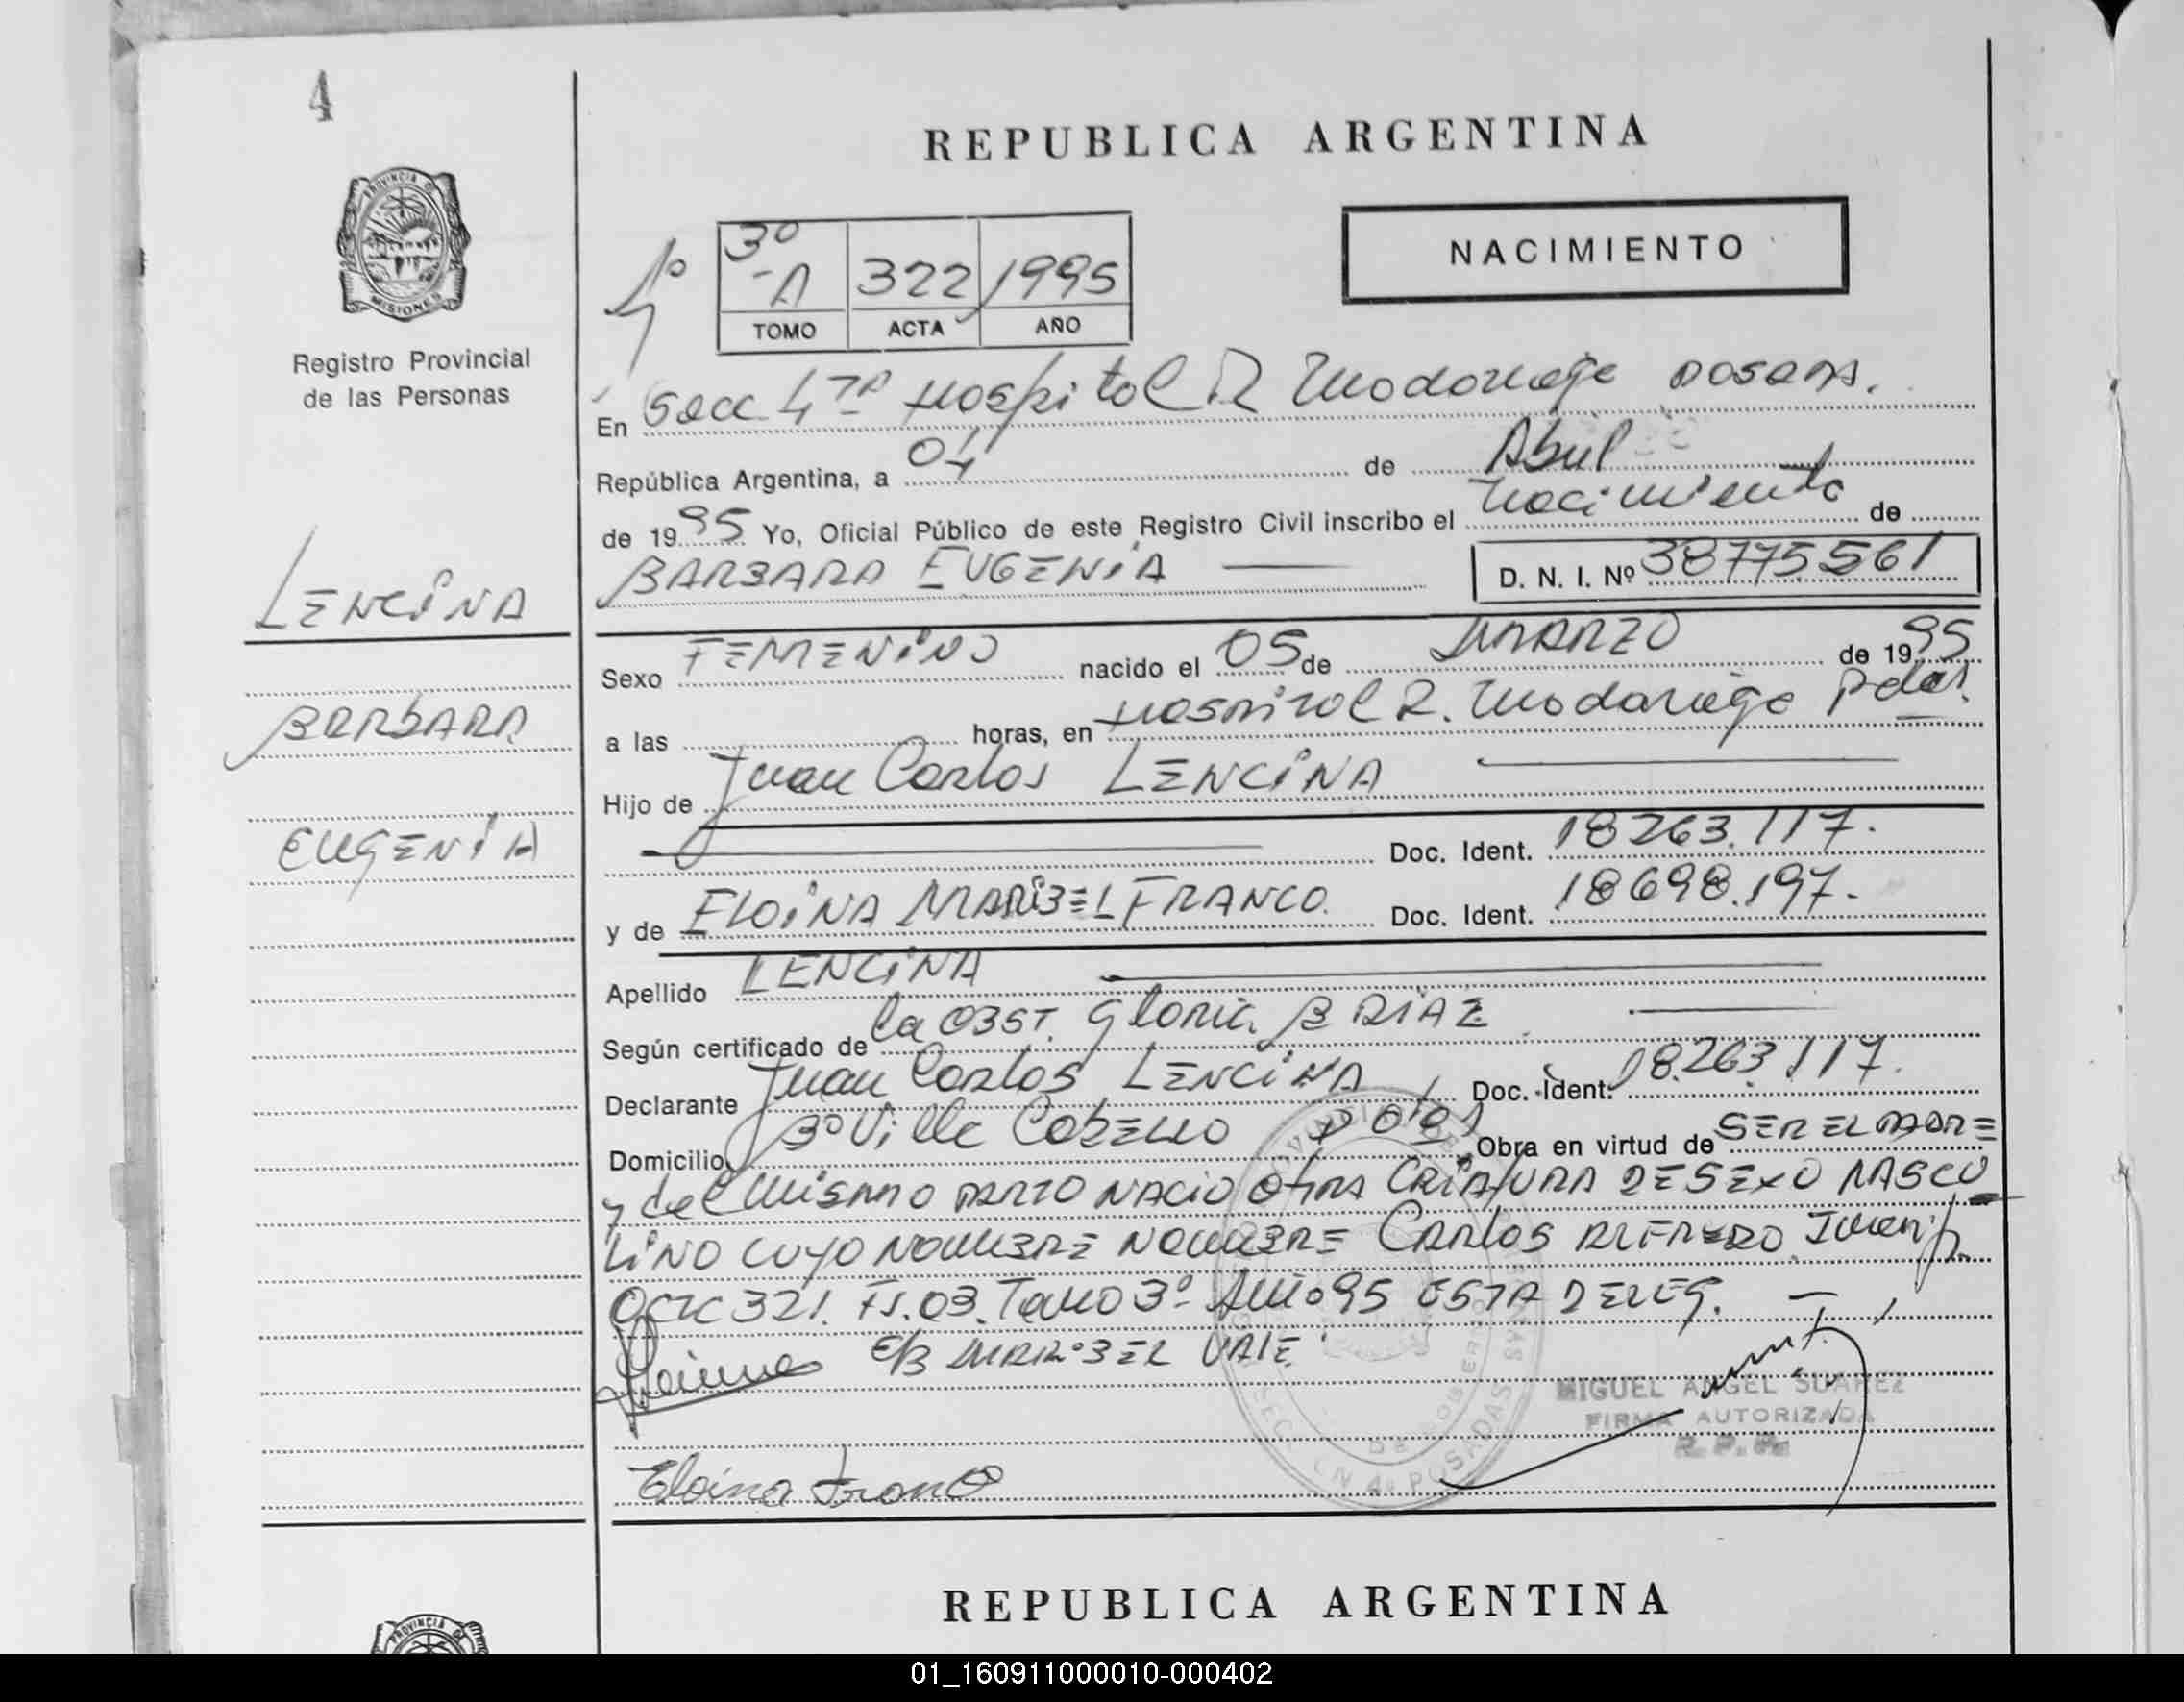 4
REPUBLICA ARGENTINA
PROVINCIA DE
MISIONES
Registro Provincial
de las Personas
NACIMIENTO
4º
3º
-A 322 1995
TOMO ACTA AÑO
En Secc 4TA Hospital R Madariaga Posadas.
República Argentina, a 04 de Abril
de 1995 Yo, Oficial Público de este Registro Civil inscribo el nacimiento de
BARBARA EUGENIA D. N. I. Nº 38775561
LENCINA
BARBARA
EUGENIA
Sexo FEMENINO nacido el 05 de MARZO de 1995
a las horas, en Hospital R. Madariaga Pdas.
Hijo de Juan Carlos LENCINA
Doc. Ident. 18263.117.
y de ELOINA MARIBEL FRANCO. Doc. Ident. 18698.197.-
Apellido LENCINA
Según certificado de la OBST. Gloria B DIAZ
Declarante Juan Carlos LENCINA Doc. Ident. 18.263.117.
Domicilio Bº Villa Cabello Pdas Obra en virtud de SER EL PADRE
y del mismo PARTO NACIO OTRA CRIATURA DE SEXO MASCU
LINO CUYO NOMBRE NOMBRE CARLOS ALFREDO
Acta 321. Fs. 03. Tomo 3º Año 95 ESTA DELEG.
E/B MARIBEL VALE.
MIGUEL ANGEL SUAREZ
FIRMA AUTORIZADA
R. P. P.
Eloina Franco
REPUBLICA ARGENTINA
PROVINCIA
01_160911000010-000402